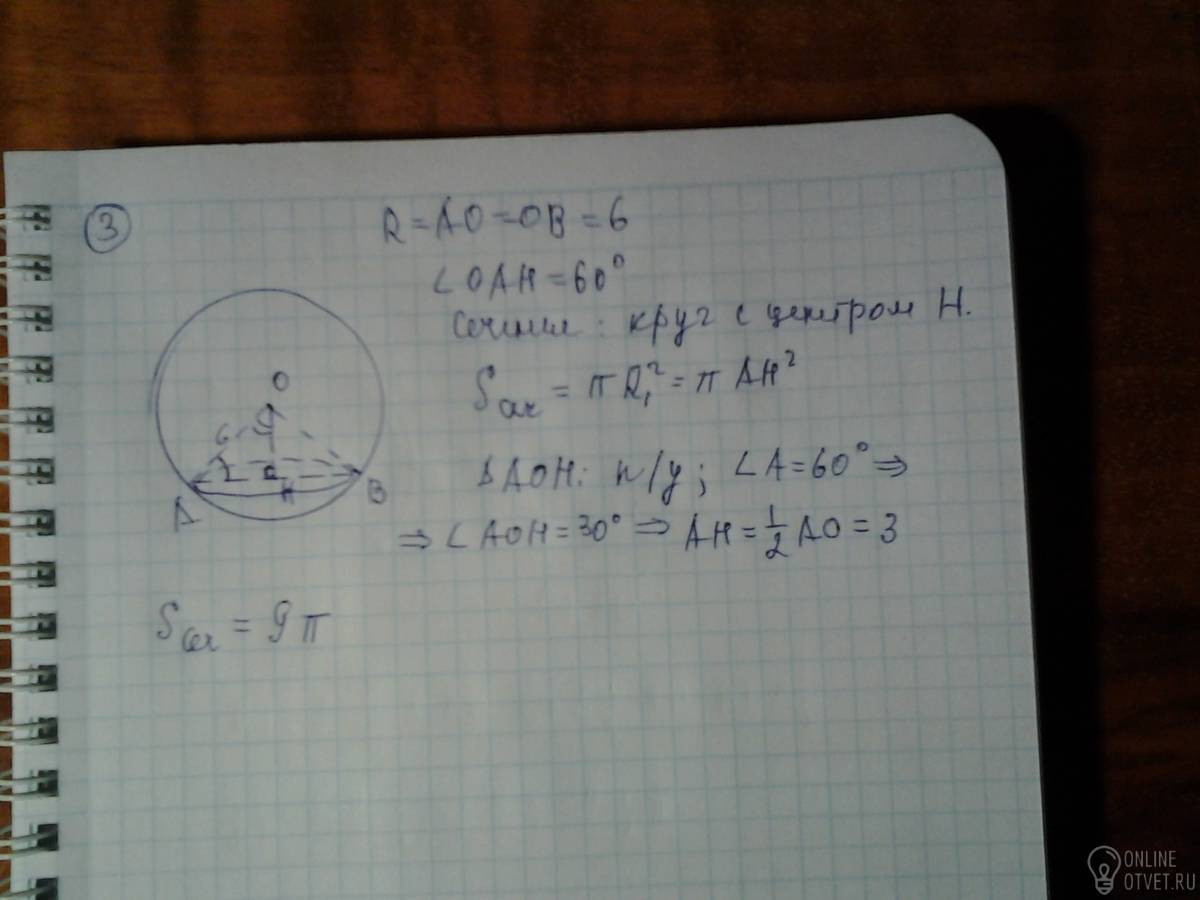 3
R = AO = OB = 6
∠OAH = 60°
Сечение: круг с центром H.
Sсеч = πR₁² = πAH²
O
6
A
H
B
ΔAOH: п/у; ∠A = 60° ⇒
⇒ ∠AOH = 30° ⇒ AH = 1/2 AO = 3
Sсеч = 9π
ONLINE
OTVET.RU